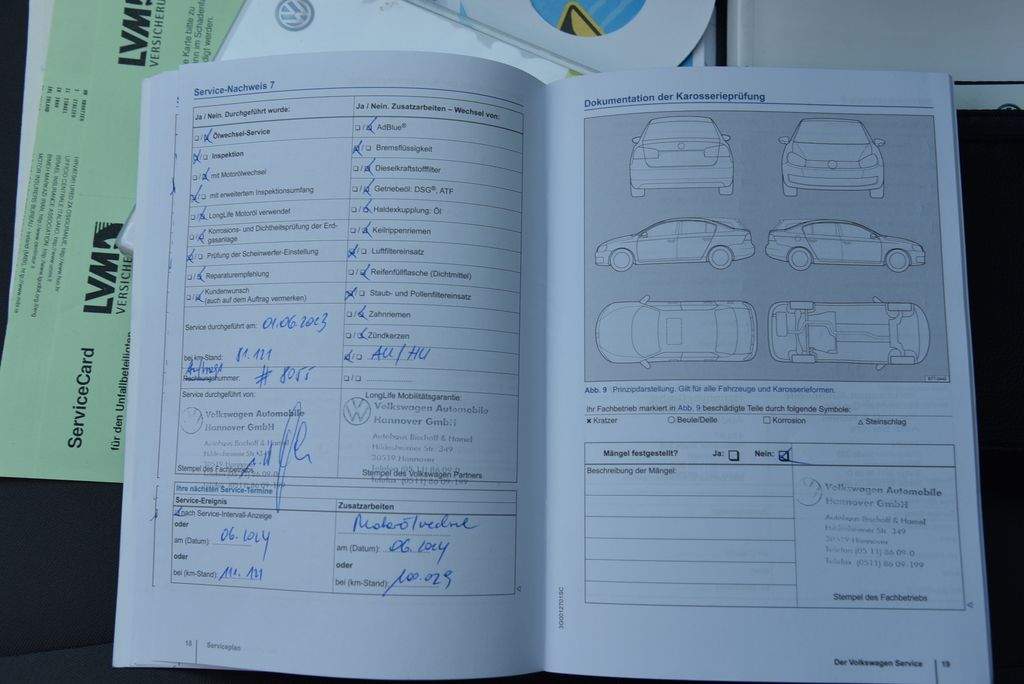 LVM
VERSICHERUNG
LVM
ServiceCard
für den Unfallbeteiligten
Service-Nachweis 7
Ja / Nein. Durchgeführt wurde:
Ölwechsel-Service
Inspektion
mit Motorölwechsel
mit erweitertem Inspektionsumfang
LongLife Motoröl verwendet
Korrosions- und Dichtheitsprüfung der Erd-
gasanlage
Prüfung der Scheinwerfer-Einstellung
Reparaturempfehlung
Kundenwunsch
(auch auf dem Auftrag vermerken)
Service durchgeführt am: 01.06.2023
bei km-Stand: 81.121
Auftrags
Rechnungsnummer: # 8055
Service durchgeführt von:
Volkswagen Automobile
Hannover GmbH
Autohaus Bischoff & Hamel
Stempel des Fachbetriebs
Ja / Nein. Zusatzarbeiten – Wechsel von:
AdBlue®
Bremsflüssigkeit
Dieselkraftstofffilter
Getriebeöl: DSG®, ATF
Haldexkupplung: Öl
Keilrippenriemen
Luftfiltereinsatz
Reifenfüllflasche (Dichtmittel)
Staub- und Pollenfiltereinsatz
Zahnriemen
Zündkerzen
AU/HU
LongLife Mobilitätsgarantie:
Volkswagen Automobile
Hannover GmbH
Autohaus Bischoff & Hamel
Hildesheimer Str. 349
30519 Hannover
Telefon (05 11) 86 09-0
Telefax (0511) 86 09-199
Stempel des Volkswagen Partners
Ihre nächsten Service-Termine
Service-Ereignis
nach Service-Intervall-Anzeige
oder
am (Datum): 06.2024
oder
bei (km-Stand): 111.121
Zusatzarbeiten
am (Datum): 06.2024
oder
bei (km-Stand): 100.029
18 Serviceplan
Dokumentation der Karosserieprüfung
Abb. 9 Prinzipdarstellung. Gilt für alle Fahrzeuge und Karosserieformen.
Ihr Fachbetrieb markiert in Abb. 9 beschädigte Teile durch folgende Symbole:
× Kratzer ○ Beule/Delle □ Korrosion △ Steinschlag
Mängel festgestellt? Ja: Nein:
Beschreibung der Mängel:
Volkswagen Automobile
Hannover GmbH
Autohaus Bischoff & Hamel
Hildesheimer Str. 349
30519 Hannover
Telefon (05 11) 86 09-0
Telefax (0511) 86 09-199
Stempel des Fachbetriebs
3G0012701SC
Der Volkswagen Service 19